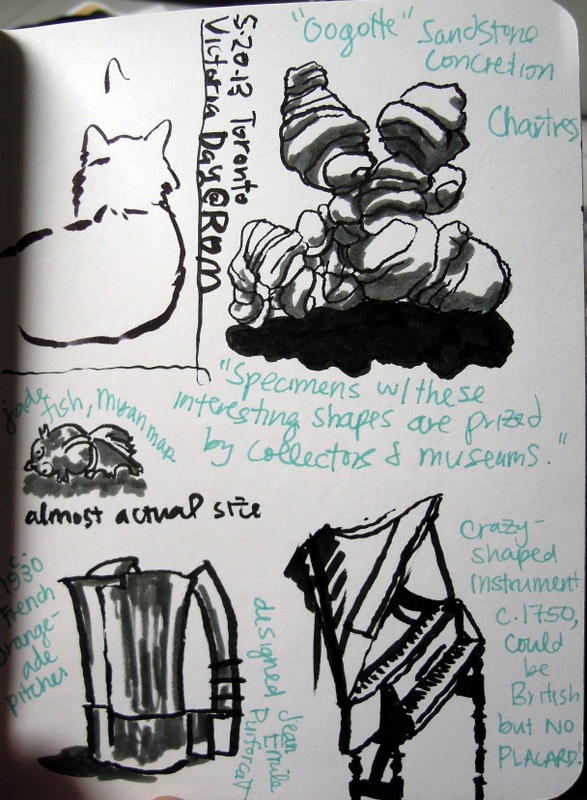 5.20.13 Toronto
Victoria Day @ ROM
"Gogotte" Sandstone
concretion
Chartres
"Specimens w/these
interesting shapes are prized
by collectors & museums."
jade fish, Myanmar
almost actual size
c.
1930
French
orange-
ade
pitcher
designed Jean
Emile
Puiforcat
crazy-
shaped
instrument
c.1750,
could
be
British
but NO
PLACARD!